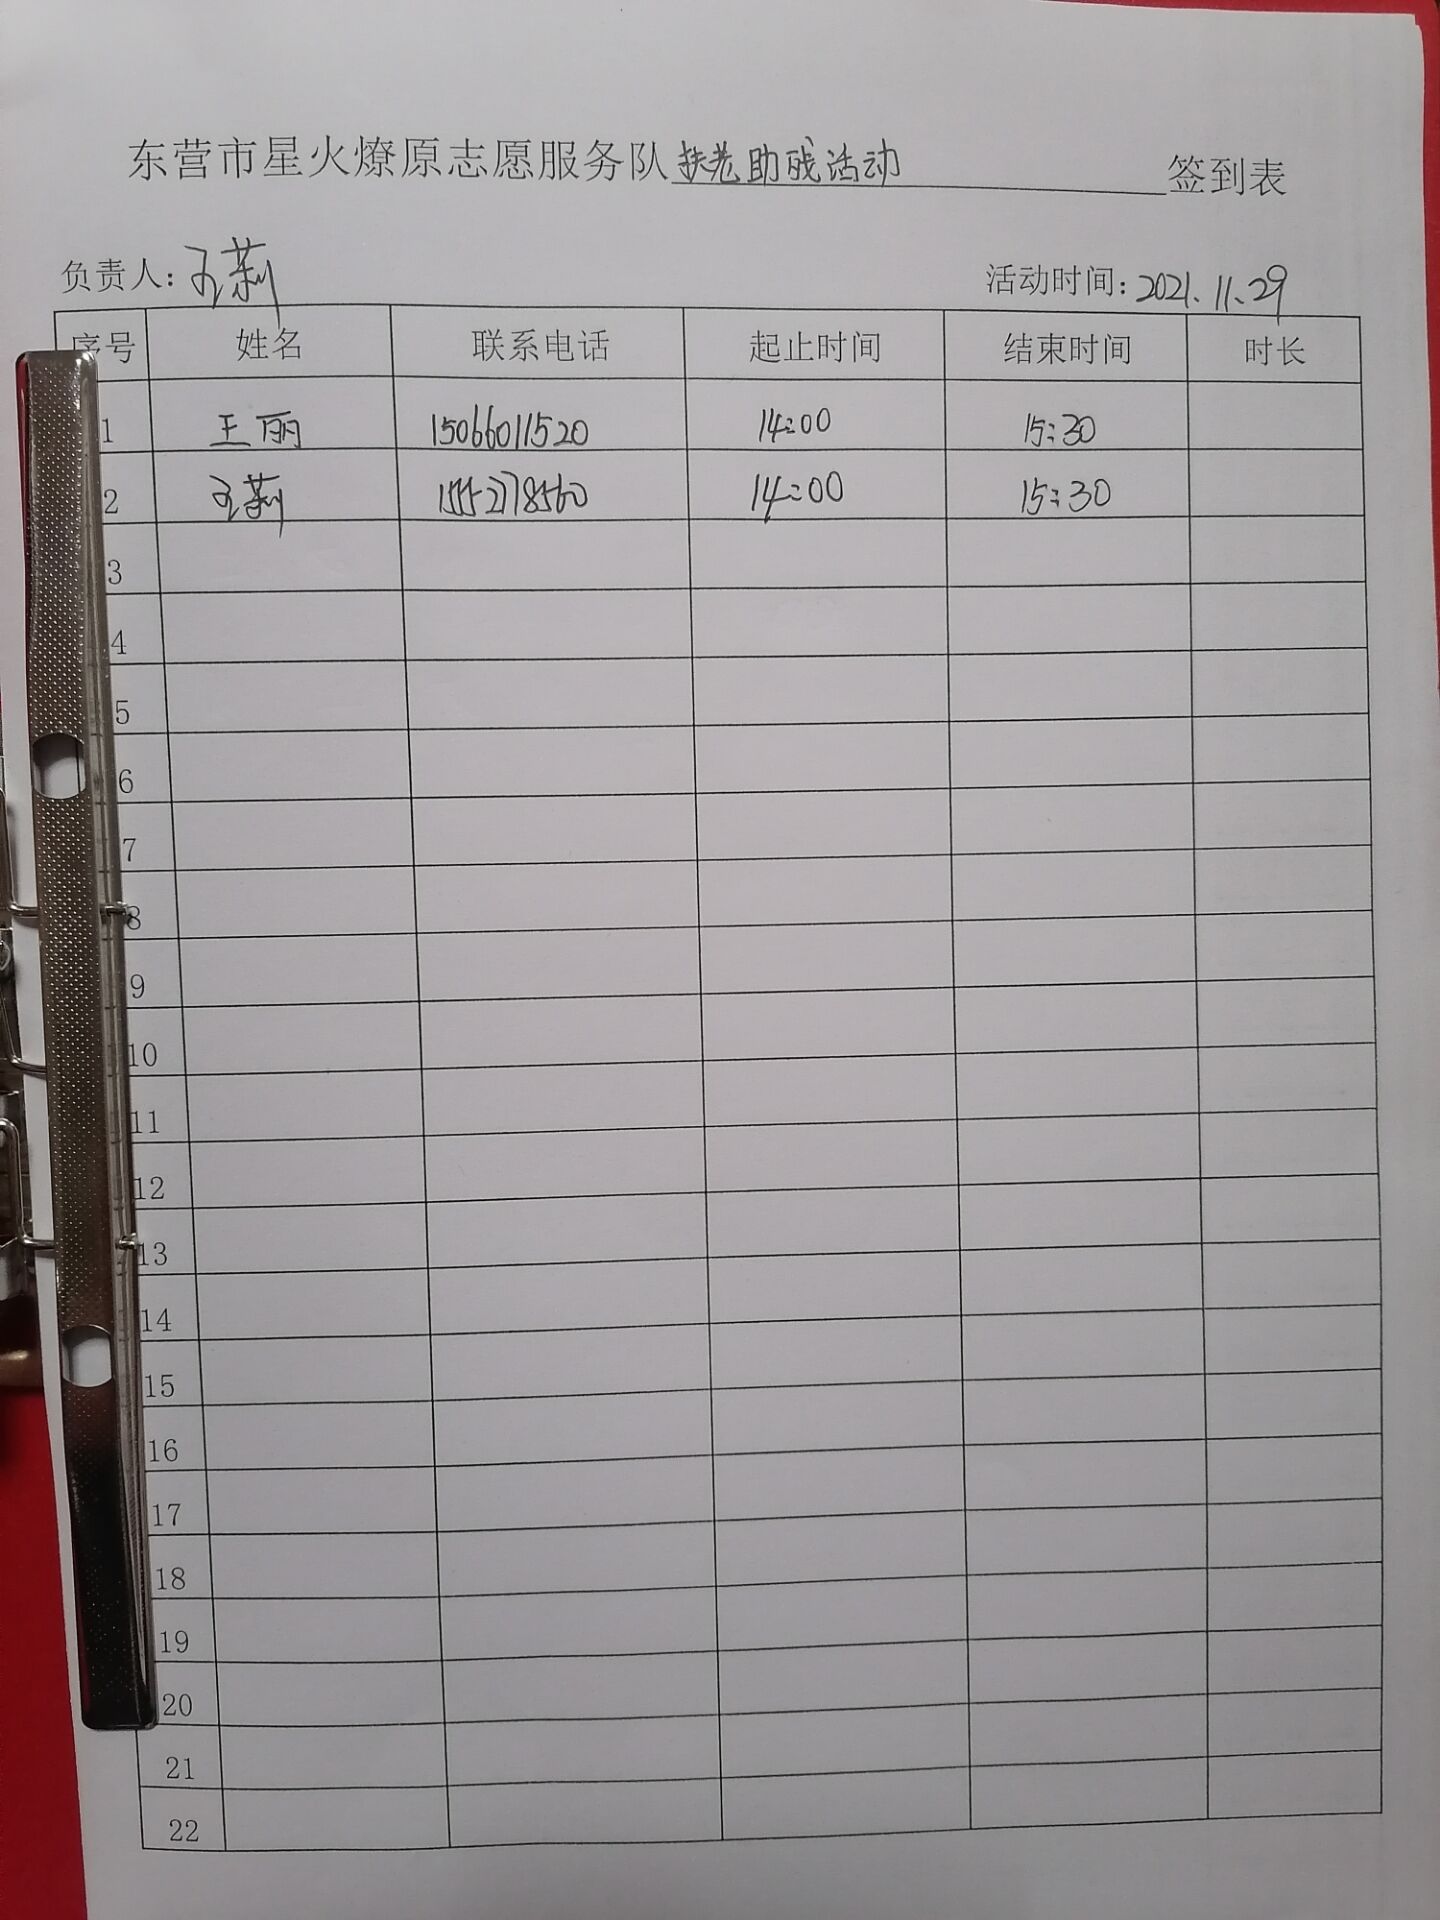 东营市星火燎原志愿服务队扶老助残活动 签到表
负责人:王莉 活动时间:2021.11.29
序号 姓名 联系电话 起止时间 结束时间 时长
1 王丽 15066011520 14:00 15:30
2 王莉 14:00 15:30
3
4
5
6
7
8
9
10
11
12
13
14
15
16
17
18
19
20
21
22